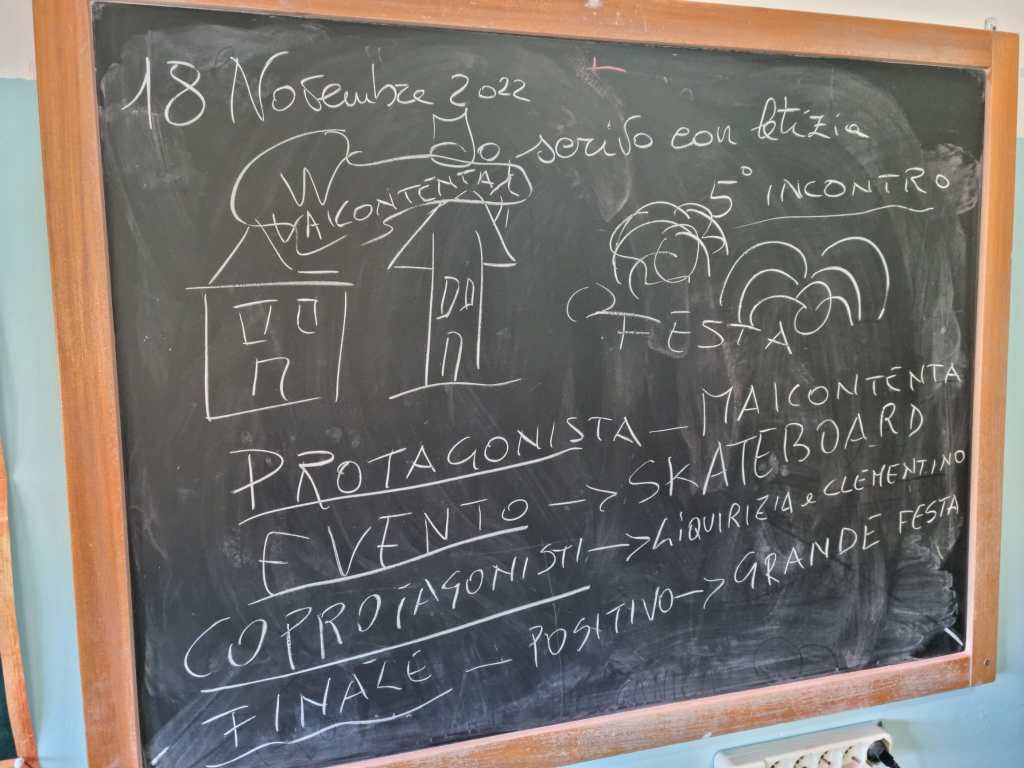 18 Novembre 2022
scrivo con letizia
W MALCONTENTA
5° INCONTRO
FESTA
PROTAGONISTA - MALCONTENTA
EVENTO -> SKATEBOARD
COPROTAGONISTI -> LIQUIRIZIA e CLEMENTINO
FINALE - POSITIVO -> GRANDE FESTA